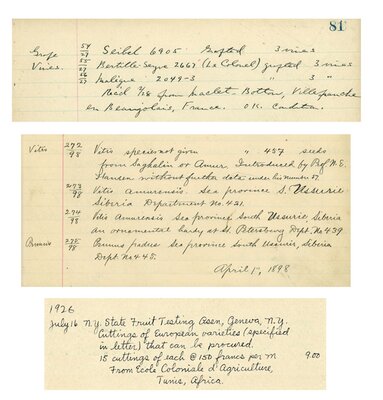 81
Grape 54/27 Seibel 6905 Grafted 3 vines
Vines. 55/27 Bertille Seyve 2667 (Le Colonel) grafted 3 vines
56/27 2049-3 " 3 "
Rec'd from Maclet-Botton, Villefranche
en Beaujolais, France. O.K.
Vitis 272/98 Vitis species not given " 457 seeds
from Saghalin or Amur. Introduced by Prof N. E.
Hansen without further data under his number 57.
273/98 Vitis amurensis. Sea province S. Ussurie
Siberia Department No. 421.
274/98 Vitis Amurensis Sea province South Ussurie Siberia
an ornamental hardy at St. Petersburg Dept. No. 439.
Prunus 275/98 Prunus padus Sea province South Ussurie, Siberia
Dept. No 445.
April 1, 1898
1926
July 16 N.Y. State Fruit Testing Assn, Geneva, N.Y.
Cuttings of European varieties (specified
in letter) that can be procured.
15 cuttings of each @ 150 francs per m 9.00
From Ecole Coloniale d'Agriculture,
Tunis, Africa.